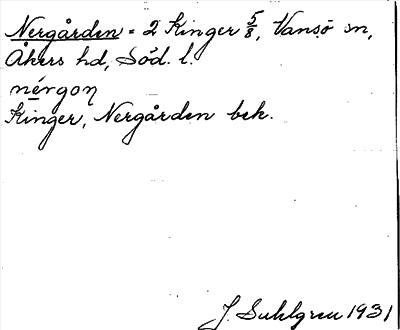 Nergården = 2 Kinger 5/8, Vansö sn,
Åkers hd, Söd. l.
nérgoη
Kinger, Nergården bek.
J. Sahlgren 1931